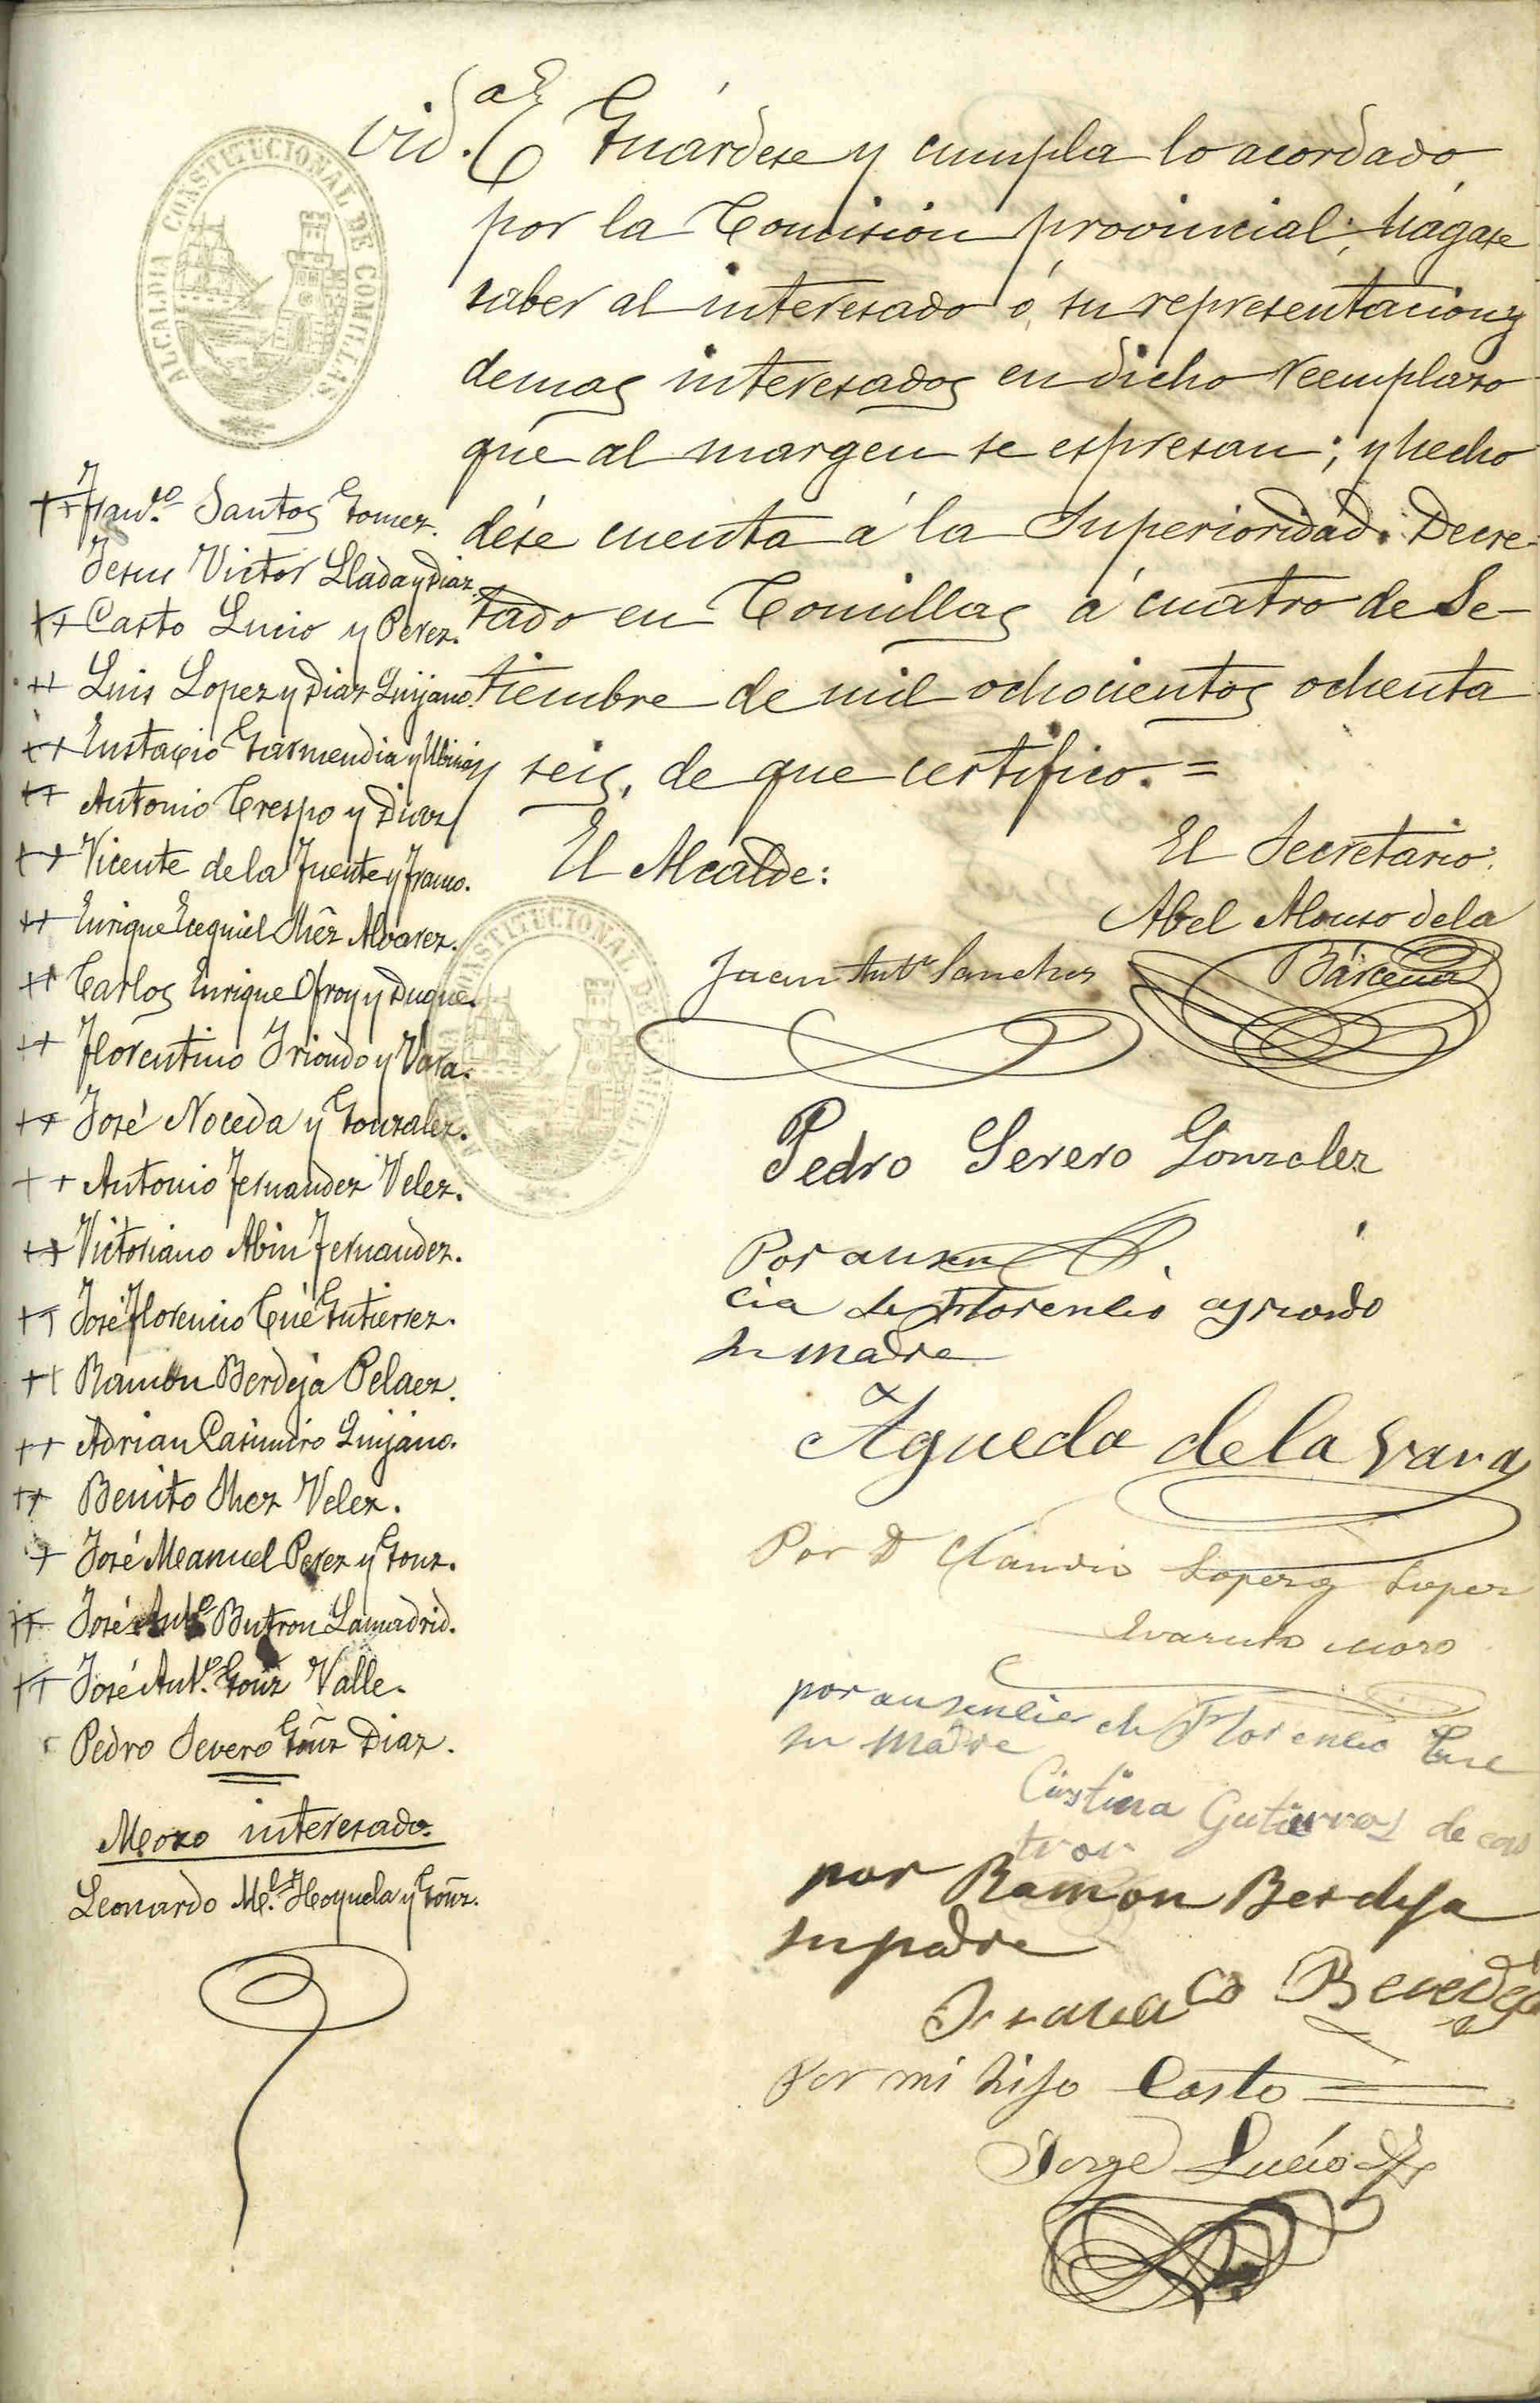 ALCALDIA CONSTITUCIONAL DE COMILLAS.
Vid.ª Guárdese y cumpla lo acordado
por la Comision provincial; hágase
saber al interesado ó su representacion y
demas interesados en dicho reemplazo
que al margen se espresan; y hecho
dése cuenta á la Superioridad. Decre-
tado en Comillas á cuatro de Se-
tiembre de mil ochocientos ochenta
y seis, de que certifico. =
El Alcalde:
El Secretario:
Juan Antº Sanchez
Abel Alonso de la
Bárcena
ALCALDIA CONSTITUCIONAL DE COMILLAS.
Franco. Santos Gomez.
Jesus Victor Llada y Diaz.
Casto Lucio y Perez.
Luis Lopez y Diaz Quijano.
Eustaqio Garmendia y
Antonio Crespo y Diaz
Vicente de la Fuente y
Enrique Ecequiel Shêz Alvarez.
Carlos Enrique Ofroy y Duque.
Florentino Iriondo y Vara.
José Noceda y Gonzalez.
Antonio Fernandez Velez.
Victoriano Abin Fernandez.
José Florencio Cué Gutierrez.
Ramon Berdeja Pelaez.
Adrian Casimiro Quijano.
Benito Shez Velez.
José Manuel Perez y Gonz.
José Anto Butron Lamadrid.
José Anto. Gonz Valle.
Pedro Severo Goñz Diaz.
Mozo interesado.
Leonardo Ml. Hoyuela y Goñz.
Pedro Severo Gonzalez
Por ausen
cia de Florencio
su madre
Agueda de la Vara
Por D Claudio Lopez y Lopez
Evaristo Moro
por ausencia de Florencio Cue
su Madre
Cristina Gutierrez de cas
tro
por Ramon Berdeja
su padre
Berdeja
Por mi hijo Casto
Jorge Lucio